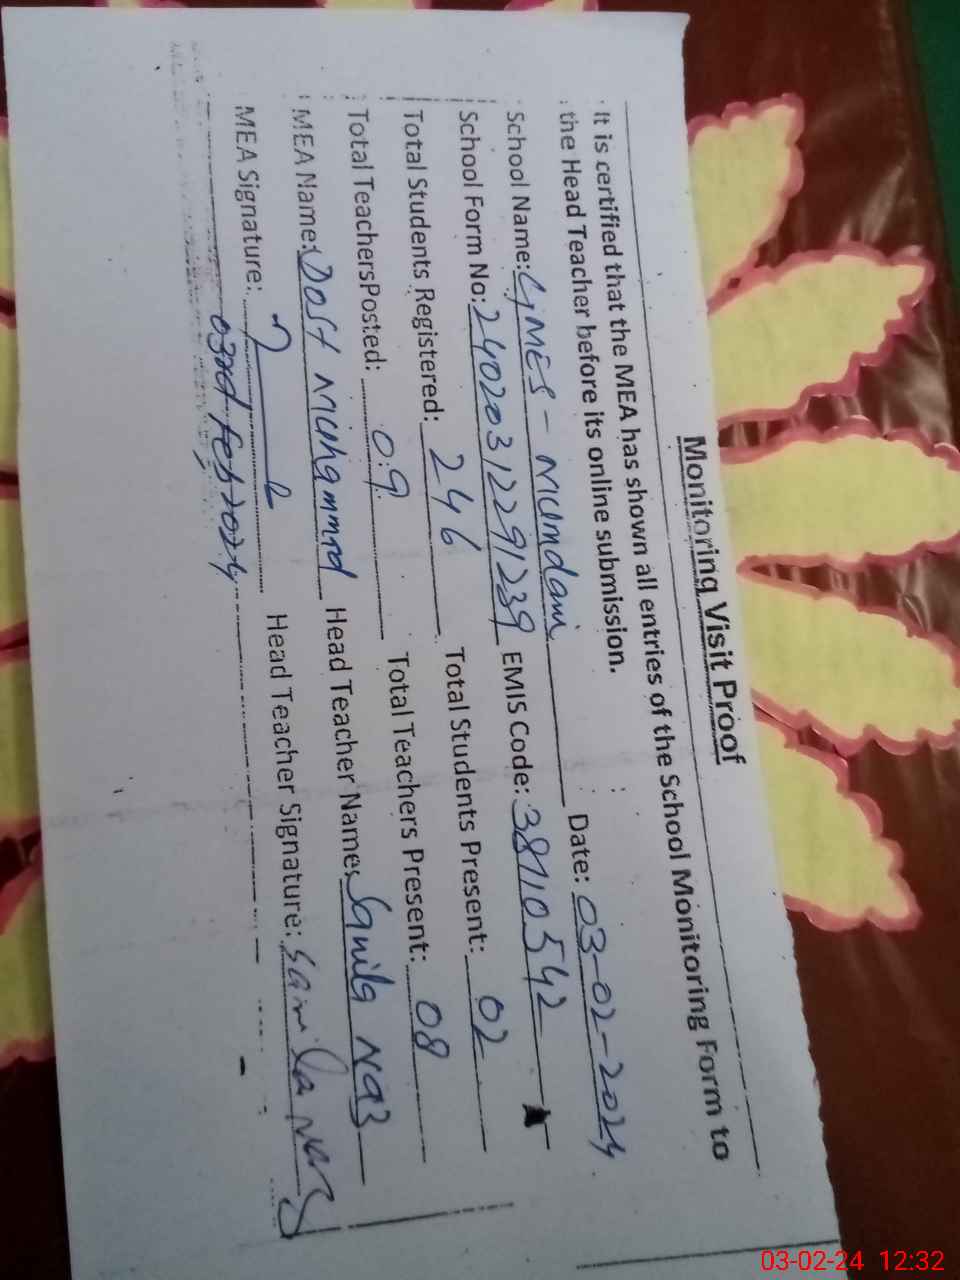 Monitoring Visit Proof
It is certified that the MEA has shown all entries of the School Monitoring Form to
the Head Teacher before its online submission.
School Name: GMES - Mumdani Date: 03-02-2024
School Form No: 24020312291239 EMIS Code: 38110542
Total Students Registered: 246 Total Students Present: 02
Total TeachersPosted: 09 Total Teachers Present: 08
MEA Name: Dost Muhammad Head Teacher Name: Samila Naz
MEA Signature: Head Teacher Signature: Samila Naz
03rd Feb 2024
03-02-24 12:32